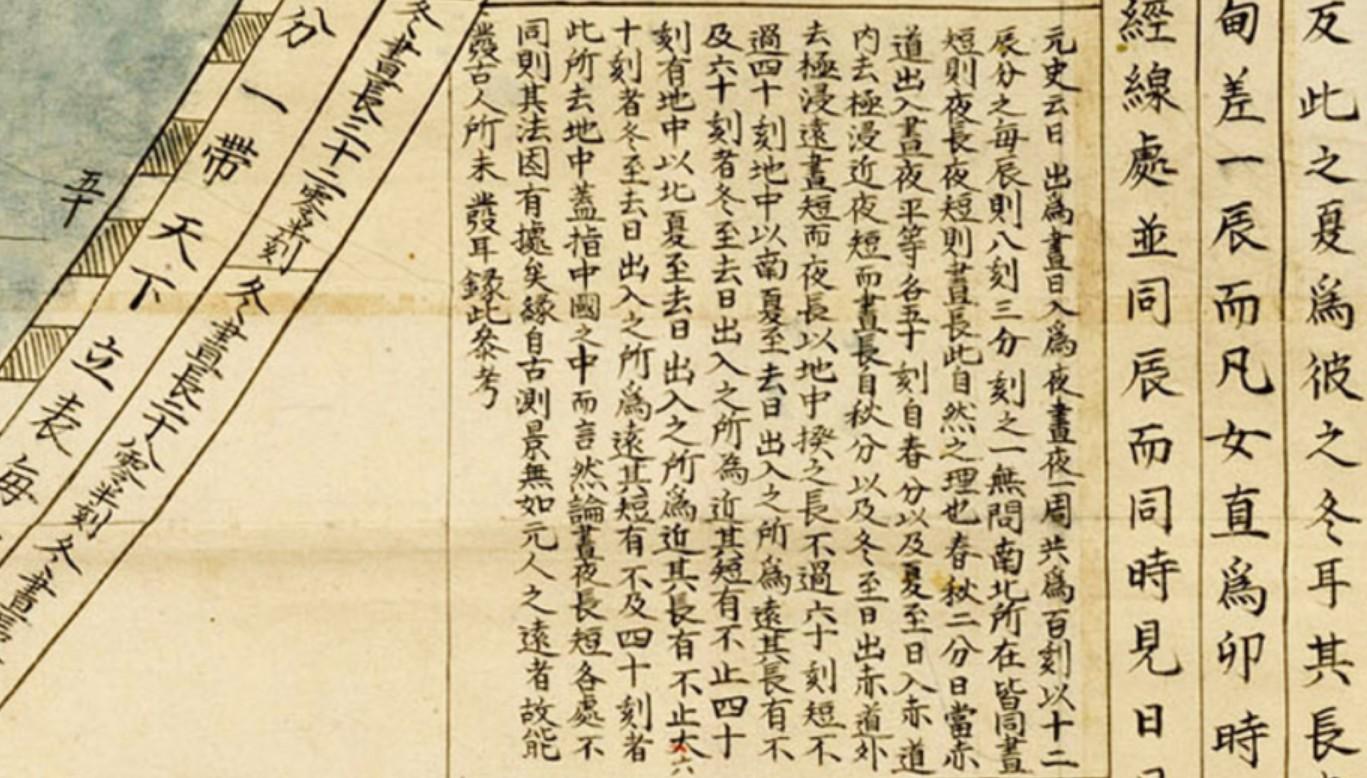 反此之夏爲彼之冬耳其長
甸差一辰而凡女直爲卯時
經線處並同辰而同時見日
元史云日出爲晝日入爲夜晝夜一周共爲百刻以十二
辰分之每辰則八刻三分刻之一無問南北所在皆同晝
短則夜長夜短則晝長此自然之理也春秋二分日當赤
道出入晝夜平等各五十刻自春分以及夏至日入赤道
内去極浸近夜短而晝長自秋分以及冬至日出赤道外
去極浸遠晝短而夜長以地中揆之長不過六十刻短不
過四十刻地中以南夏至去日出入之所爲遠其長有不
及六十刻者冬至去日出入之所為近其短有不止四十
刻有地中以北夏至去日出入之所爲近其長有不止大六
十刻者冬至去日出入之所爲遠其短有不及四十刻者
此所去地中蓋指中國之中而言然論晝夜長短各處不
同則其法因有據矣緣自古測景無如元人之遠者故能
發古人所未發耳錄此叅考
冬晝長三十二零半刻
冬晝長二十八零半刻
冬晝長
分一帶天下立表每
五十